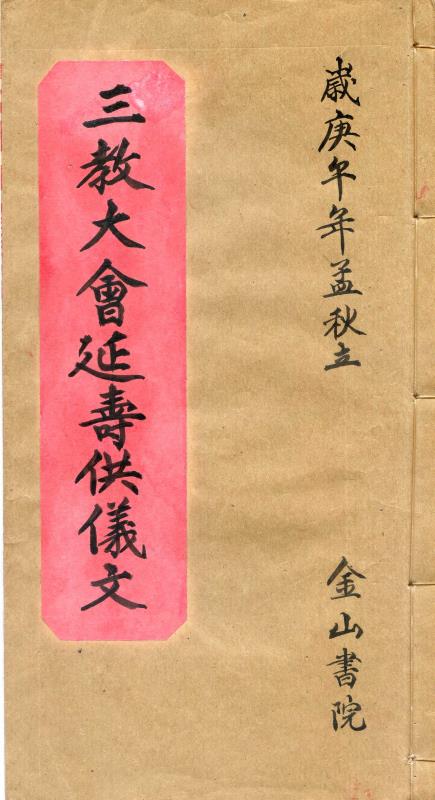 歲庚午年孟秋立
金山書院
三教大會延壽供儀文